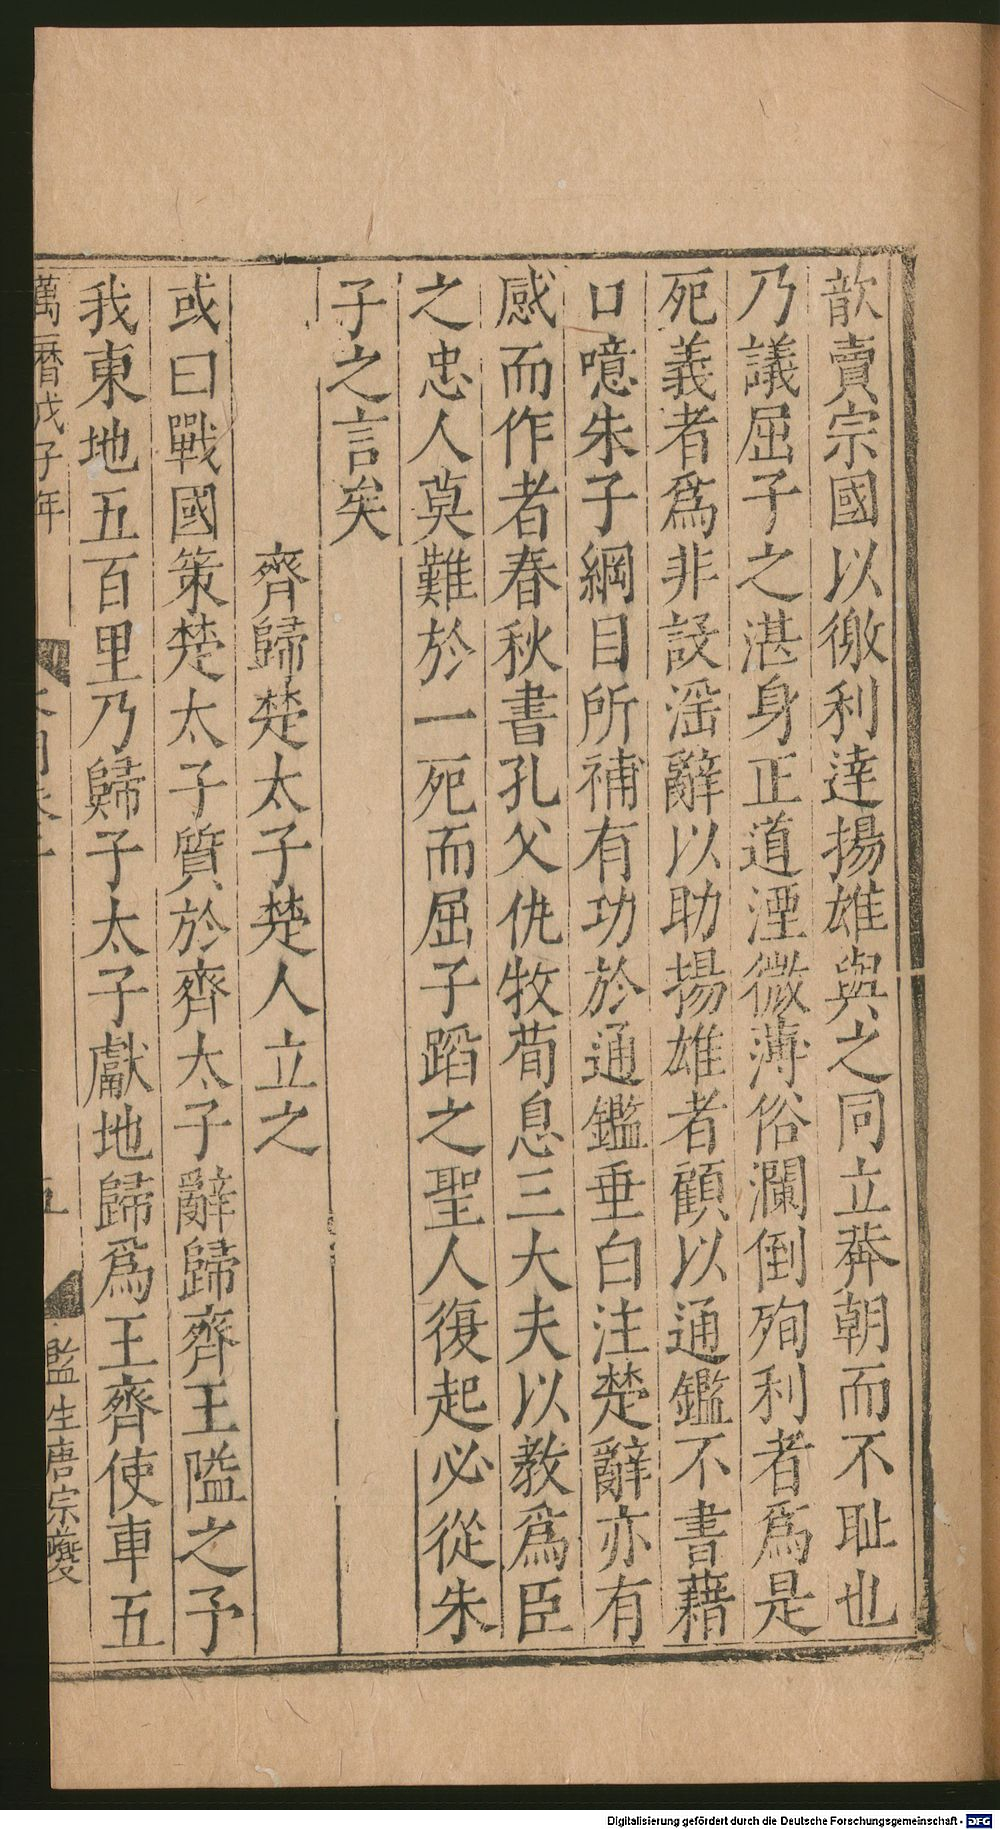 歆賣宗國以徼利達揚雄與之同立莽朝而不耻也
乃議屈子之湛身正道湮微薄俗瀾倒殉利者爲是
死義者爲非設滛辭以助揚雄者顧以通鑑不書藉
口噫朱子綱目所補有功於通鑑垂白注楚辭亦有
感而作者春秋書孔父仇牧荀息三大夫以教爲臣
之忠人莫難於一死而屈子蹈之聖人復起必從朱
子之言矣
齊歸楚太子楚人立之
或曰戰國策楚太子質於齊太子辭歸齊王隘之予
我東地五百里乃歸子太子獻地歸爲王齊使車五
萬曆戊子年
五
監生唐宗夔
Digitalisierung gefördert durch die Deutsche Forschungsgemeinschaft - DFG